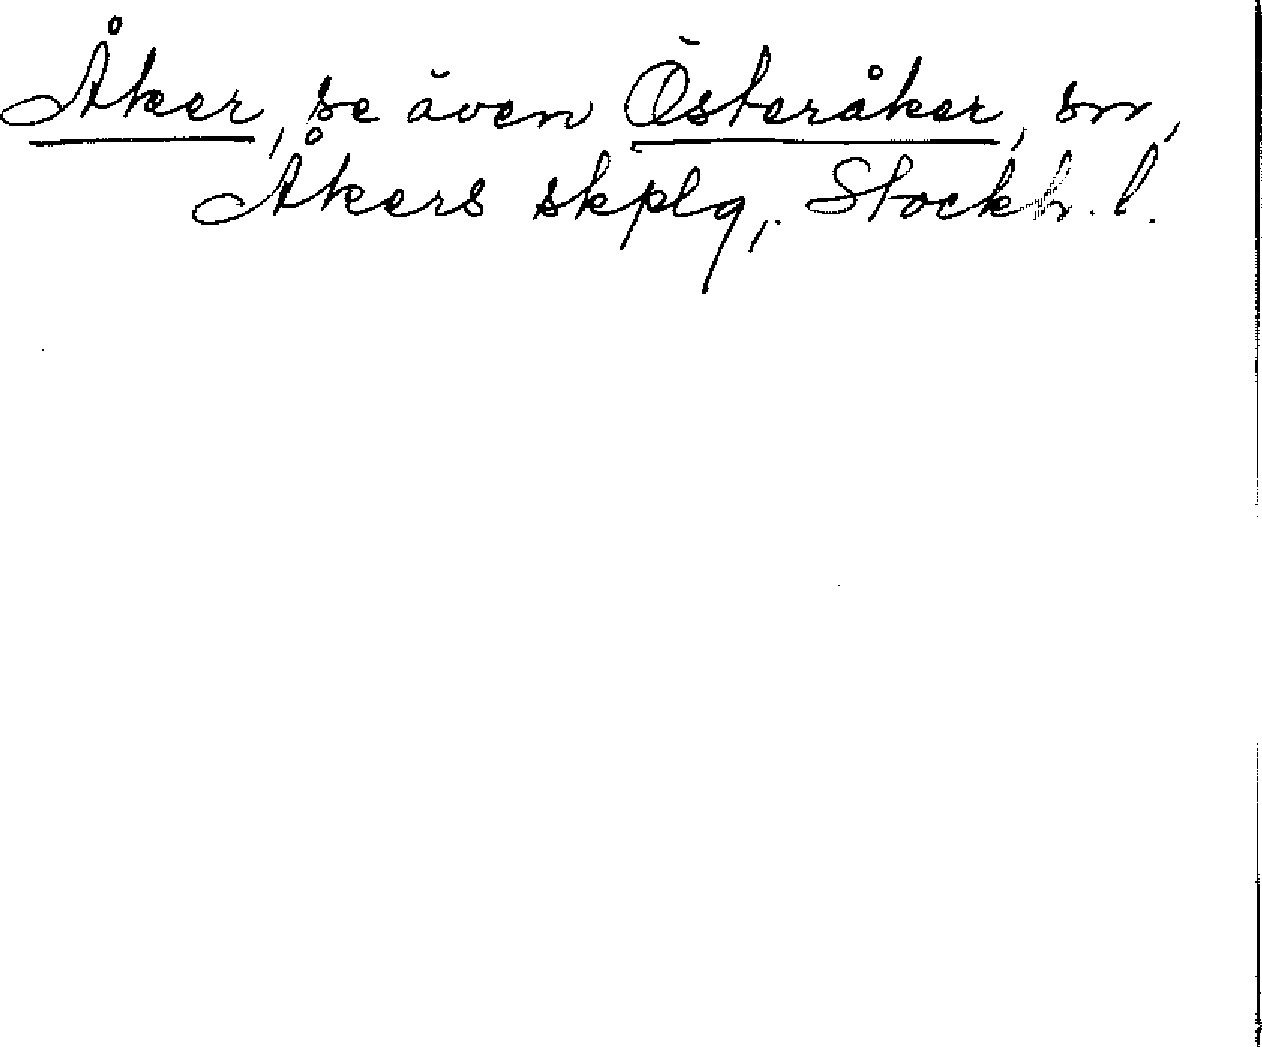 Åker, se även Österåker, sn,
Åkers skplg, Stockh. l.